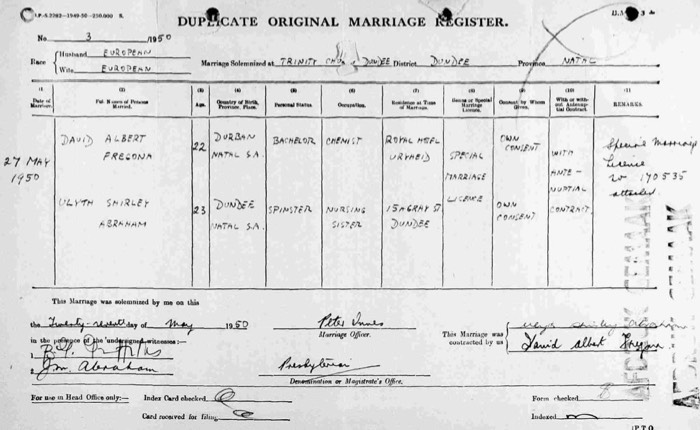 U.P.-S.2282-1949-50-250,000 S.
DUPLICATE ORIGINAL MARRIAGE REGISTER.
No. 3 /1950
Race Husband EUROPEAN
Wife EUROPEAN
Marriage Solemnized at TRINITY CHU DUNDEE District DUNDEE Province NATAL
(1) (2) (3) (4) (5) (6) (7) (8) (9) (10) (11)
Date of Marriage. Full Names of Persons Married. Age. Country of Birth, Province, Place. Personal Status. Occupation. Residence at Time of Marriage. Banns or Special Marriage Licence. Consent by Whom Given. With or without Antenuptial Contract. REMARKS.
27 MAY 1950
DAVID ALBERT FREGONA 22 DURBAN NATAL S.A. BACHELOR CHEMIST ROYAL HOTEL VRYHEID SPECIAL MARRIAGE LICENCE OWN CONSENT WITH ANTE-NUPTIAL CONTRACT Special Marriage Licence No 170535 attached
ULYTH SHIRLEY ABRAHAM 23 DUNDEE NATAL S.A. SPINSTER NURSING SISTER 15A GRAY ST DUNDEE OWN CONSENT
AFDRUK GEMAAK
AFDRUK GEMAAK
This Marriage was solemnized by me on this
the Twenty-seventh day of May 1950
Peter Innes
Marriage Officer.
in the presence of the undersigned witnesses:—
1
2 Abraham
Presbyterian
Denomination or Magistrate's Office.
This Marriage was contracted by us
David Albert Fregona
For use in Head Office only:— Index Card checked
Card received for filing
Form checked
Indexed
P T O